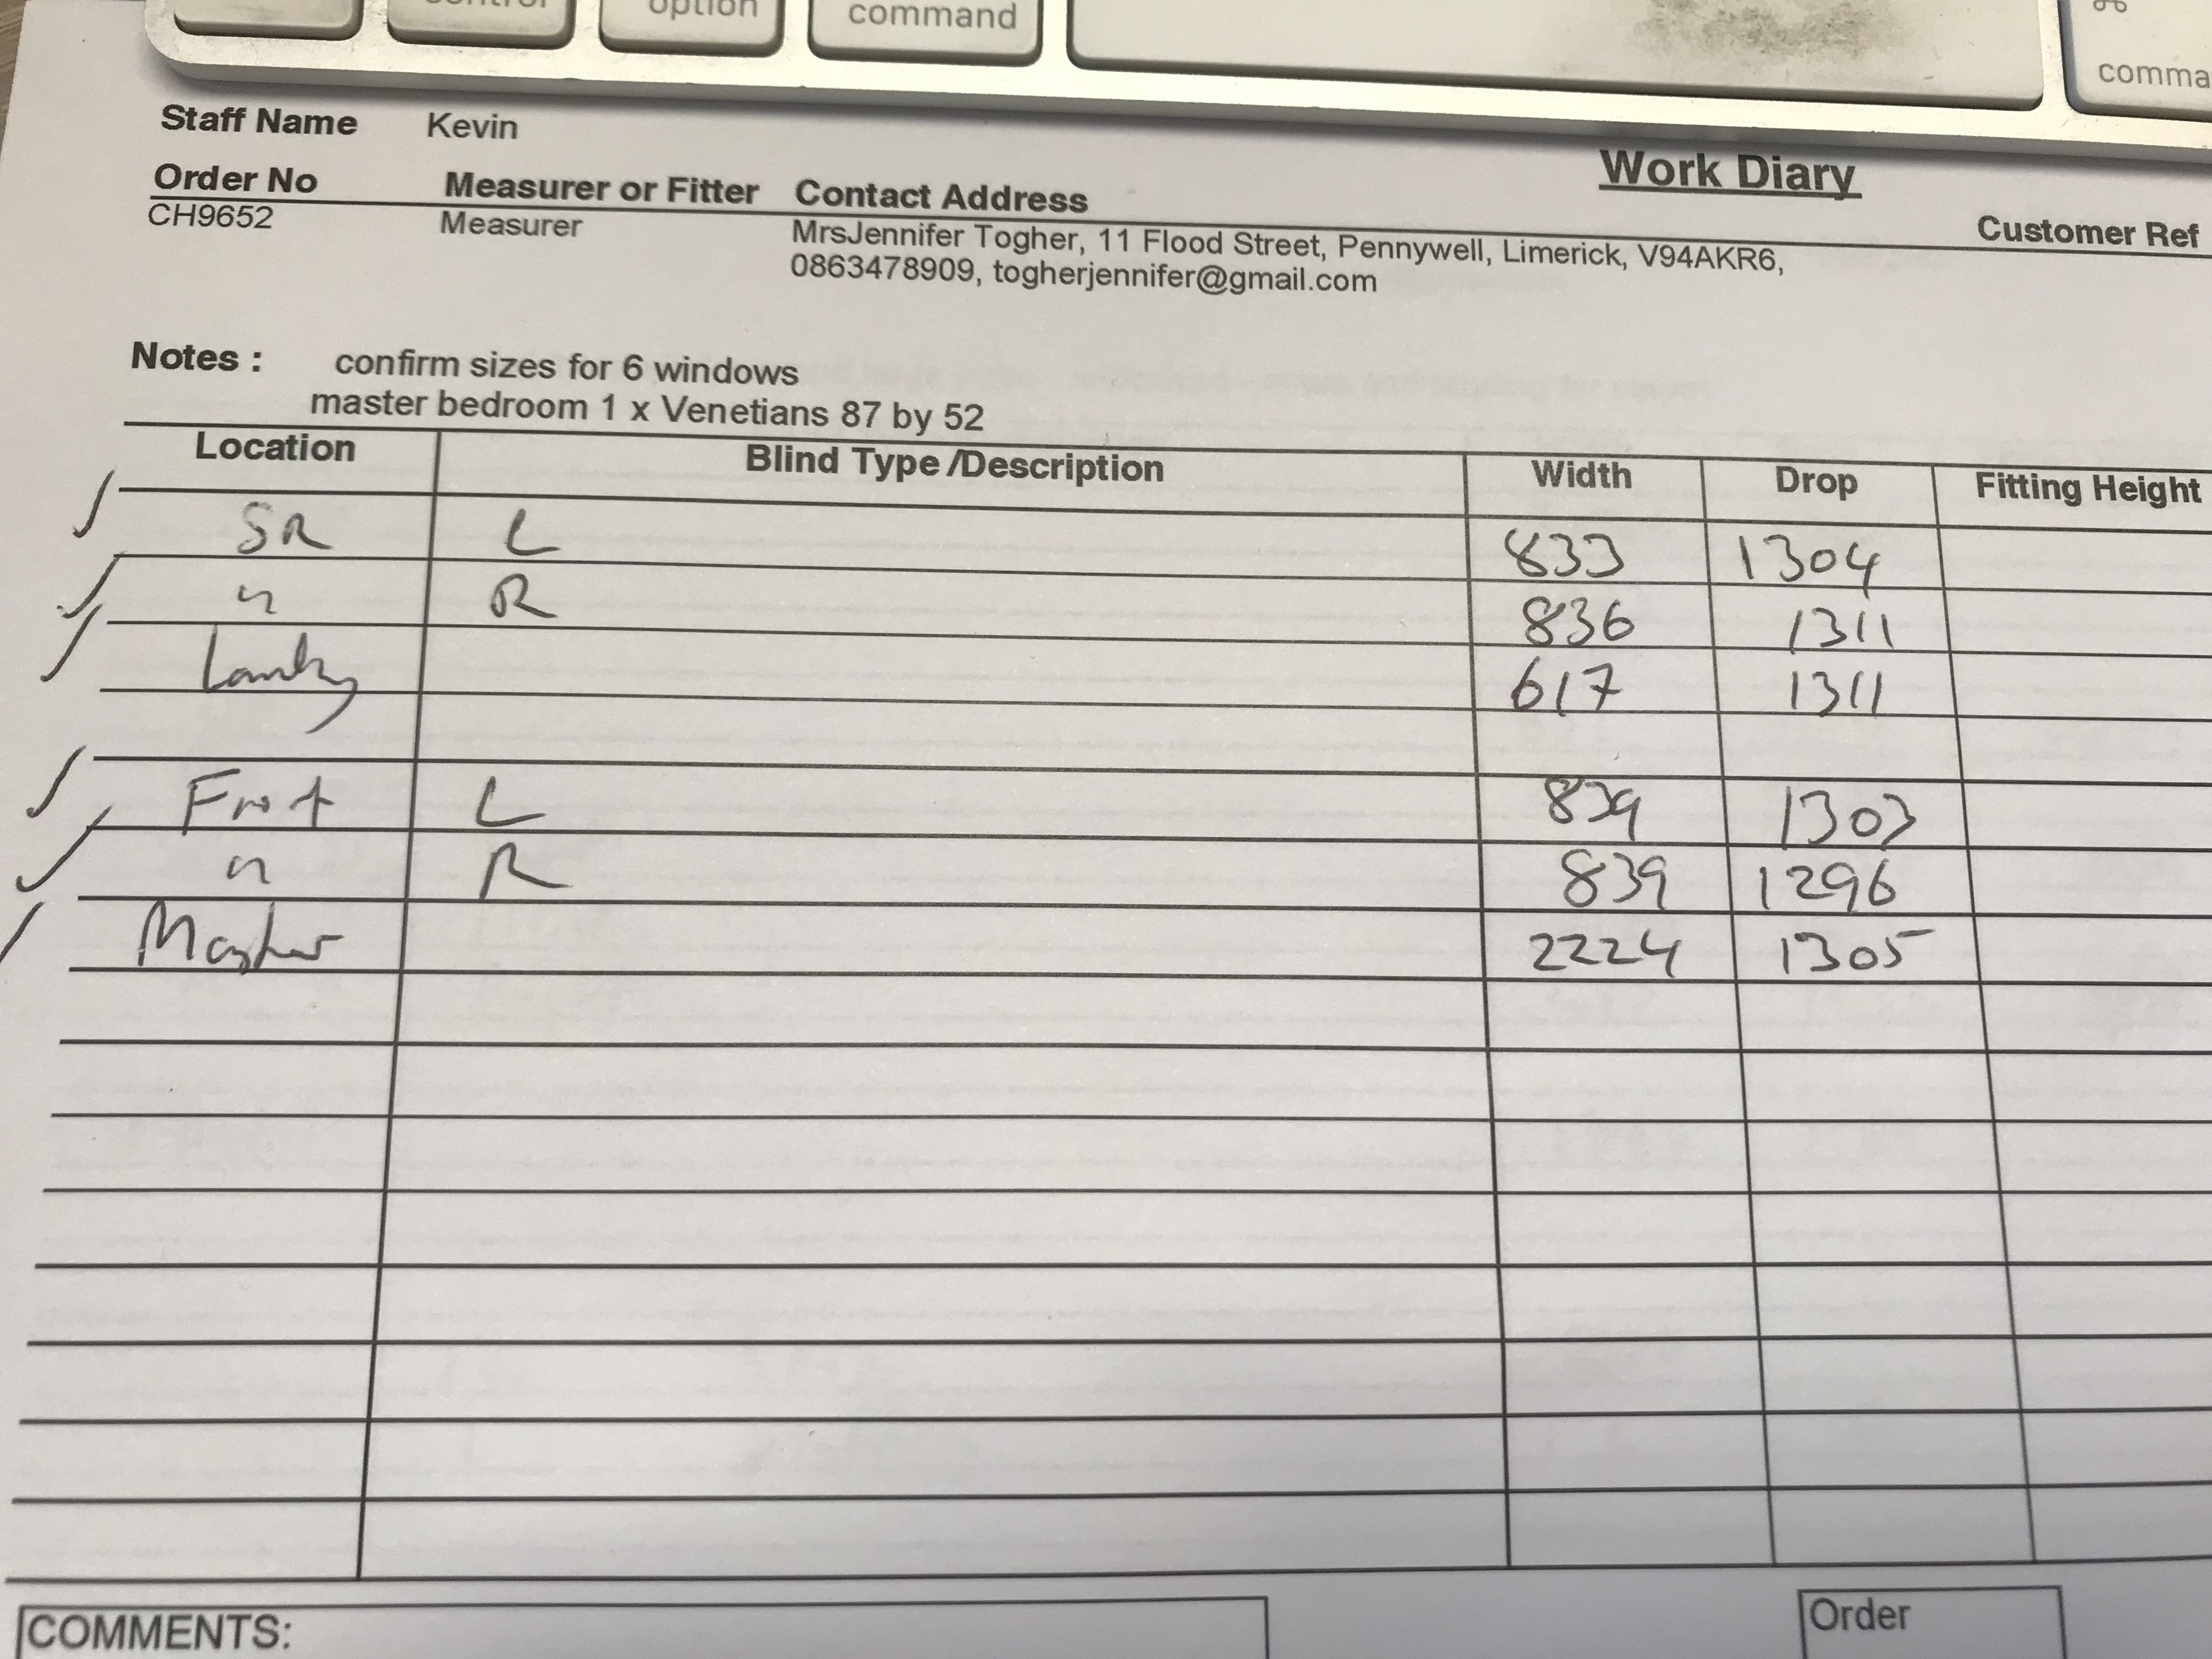 control option command
comma
Staff Name Kevin
Work Diary
Order No Measurer or Fitter Contact Address Customer Ref
CH9652 Measurer MrsJennifer Togher, 11 Flood Street, Pennywell, Limerick, V94AKR6,
0863478909, togherjennifer@gmail.com
Notes : confirm sizes for 6 windows
master bedroom 1 x Venetians 87 by 52
Location Blind Type /Description Width Drop Fitting Height
SR L 833 1304
" R 836 1311
617 1311
Front L 839 1303
" R 839 1296
Master 2224 1305
COMMENTS: Order